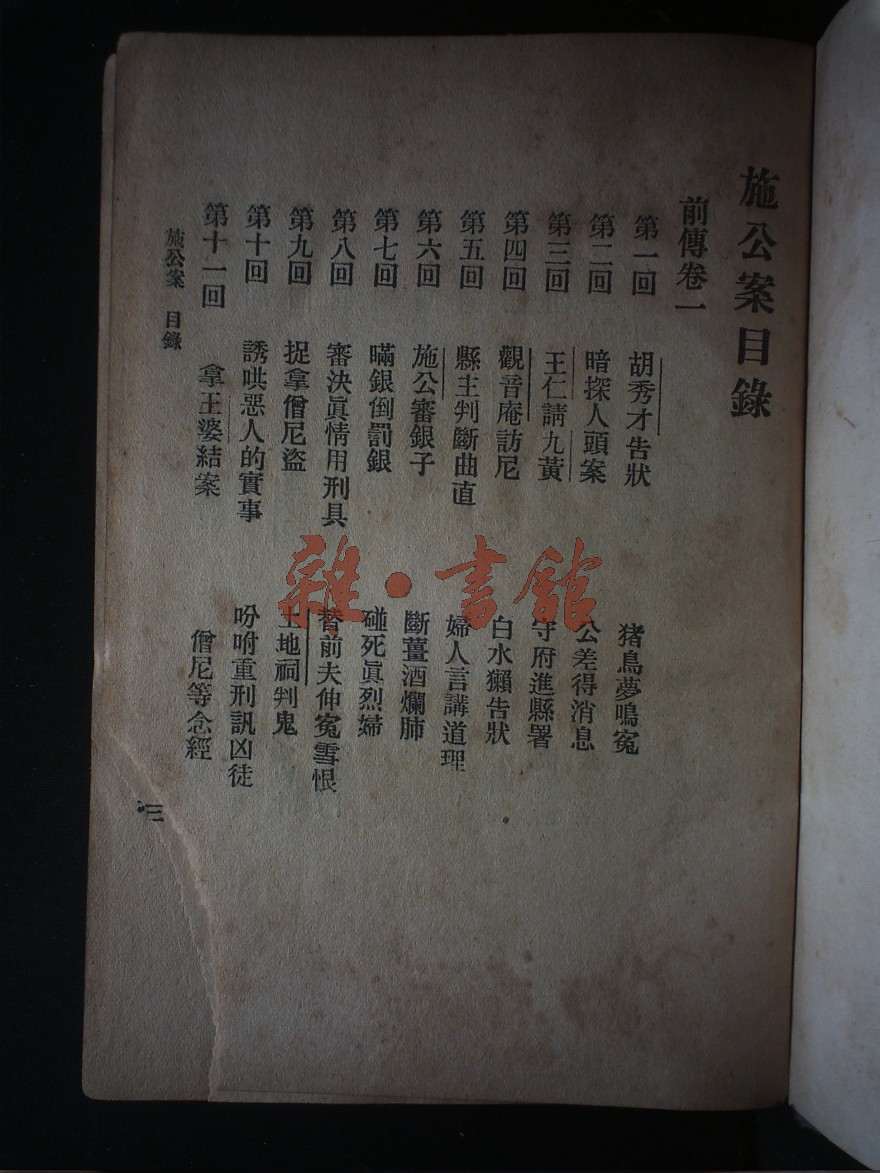 施公案目錄
前傳卷一
第一回 胡秀才告狀 猪鳥夢鳴寃
第二回 暗探人頭案 公差得消息
第三回 王仁請九黃 守府進縣署
第四回 觀音庵訪尼 白水獺告狀
第五回 縣主判斷曲直 婦人言講道理
第六回 施公審銀子 斷薑酒爛肺
第七回 瞞銀倒罰銀 碰死眞烈婦
第八回 審決眞情用刑具 替前夫伸寃雪恨
第九回 捉拿僧尼盜 土地祠判鬼
第十回 誘哄惡人的實事 吩咐重刑訊凶徒
第十一回 拿王婆結案 僧尼等念經
施公案 目錄 三
雜·書館